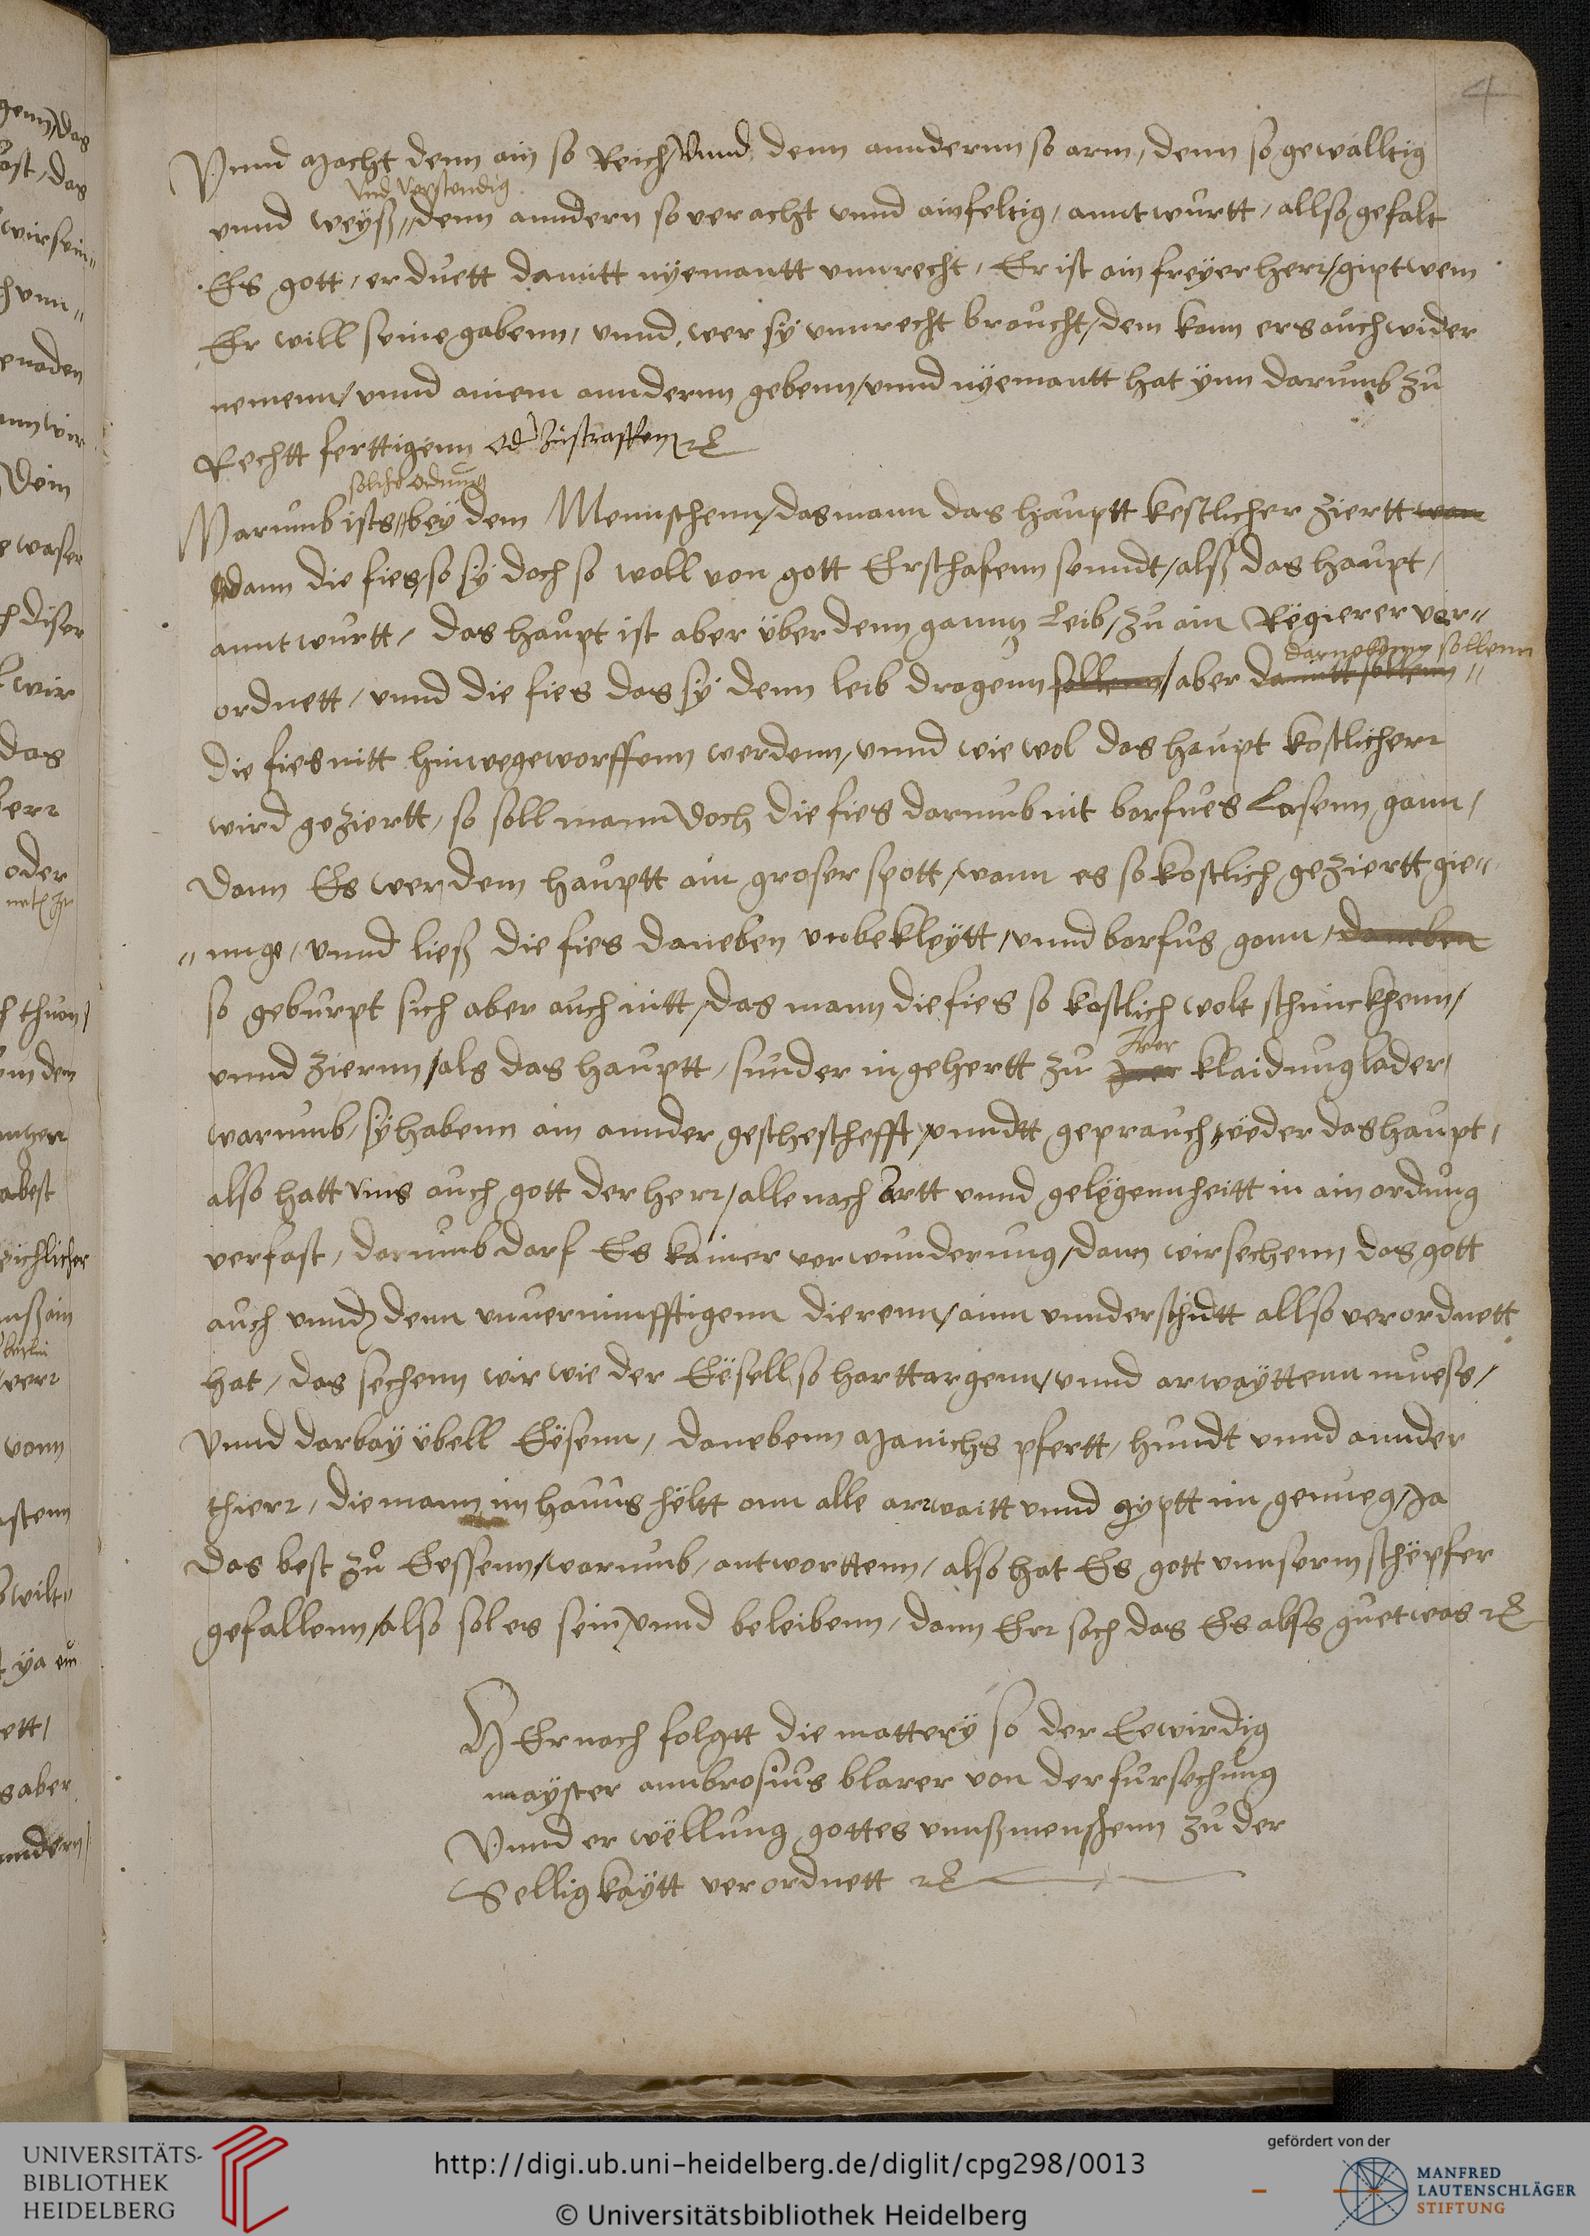 4
Vnnd macht denn ain so Reich / Vnnd denn anndernn so arm, denn so gewalltig
vnd Verstendig
vnnd weyß, denn anndern so veracht vnnd ainfeltig, anntwurtt, allso gefalt
Es gott, er duett damitt nyemantt vnnrecht, Er ist ain freyer herr / gipt wem
Er will seine gabenn, vnnd wer sy vnnrecht braucht / dem kann ers auch wider
nemenn / vnnd ainem anndernn gebenn / vnnd nyemantt hat ynn darumb zu
Rechtt ferttigenn od zustraffen
solche ordnung
Warumb ists bey dem Mennschenn / das mann das hauptt kestlicher ziertt wan
dann die fies / so sy doch so woll von gott Erschafenn senndt / alß das haupt,
anntwurtt, das haupt ist aber yber denn ganntz Leib / zu ain Regierer ver"
darnebenn sollenn
ordnett, vnnd die fies das sy denn leib dragenn sollenn / aber damitt sollenn "
die fies nitt hinwegeworffenn werdenn, vnnd wie wol das haupt kostlicherr
wird geziertt, so soll mann doch die fies darumb nit barfues Lasenn gann,
dann Es wer dem hauptt ain groser spott, wann es so kostlich geziertt gie"
" nnge, vnnd ließ die fies daneben vnbekleytt, vnnd barfus gann, daneben
so geburpt sich aber auch nitt, das mann die fies so kostlich wolt schmuckhenn /
vnnd ziernn / als das hauptt, sunder in gehertt zu
Irer
klaidung lader,
warumb, sy habenn ain annder gescheschefft vnndtt geprauch, weder das haupt,
also hatt vnns auch gott der herr / alle nach artt vnnd gelegennheitt in ain ordung
verfast, darumb darf Es kainer verwunderung / dann wir sechenn das gott
auch vnnd denn vnuernunfftigenn dierenn / ainn vnnderschidtt allso verordnett
hat, das sechenn wir wie der Eesell so hartt argenn / vnnd arwayttenn muess,
Vnnd darbay ybell Eesenn, danebenn manichs pfertt, hundt vnnd annder
thierr, die mann im hauus heltt onn alle arwaitt vnnd gyptt im genueg, Ja
das best zu Eessenn, warumb, antworttenn, also hat Es gott vnnserm schepfer
gefallenn, also sol es sein vnnd beleibenn, dann Err sach das Es alss guet was
HErnach folgtt die mattery so der Eewirdig
mayster ambrosius blarer von der fursechung
Vnnd erwellung gottes vnnß menschenn zu der
Selligkaytt verordnett
UNIVERSITÄTS-
BIBLIOTHEK
HEIDELBERG
http://digi.ub.uni-heidelberg.de/diglit/cpg298/0013
© Universitätsbibliothek Heidelberg
gefördert von der
MANFRED
LAUTENSCHLÄGER
STIFTUNG